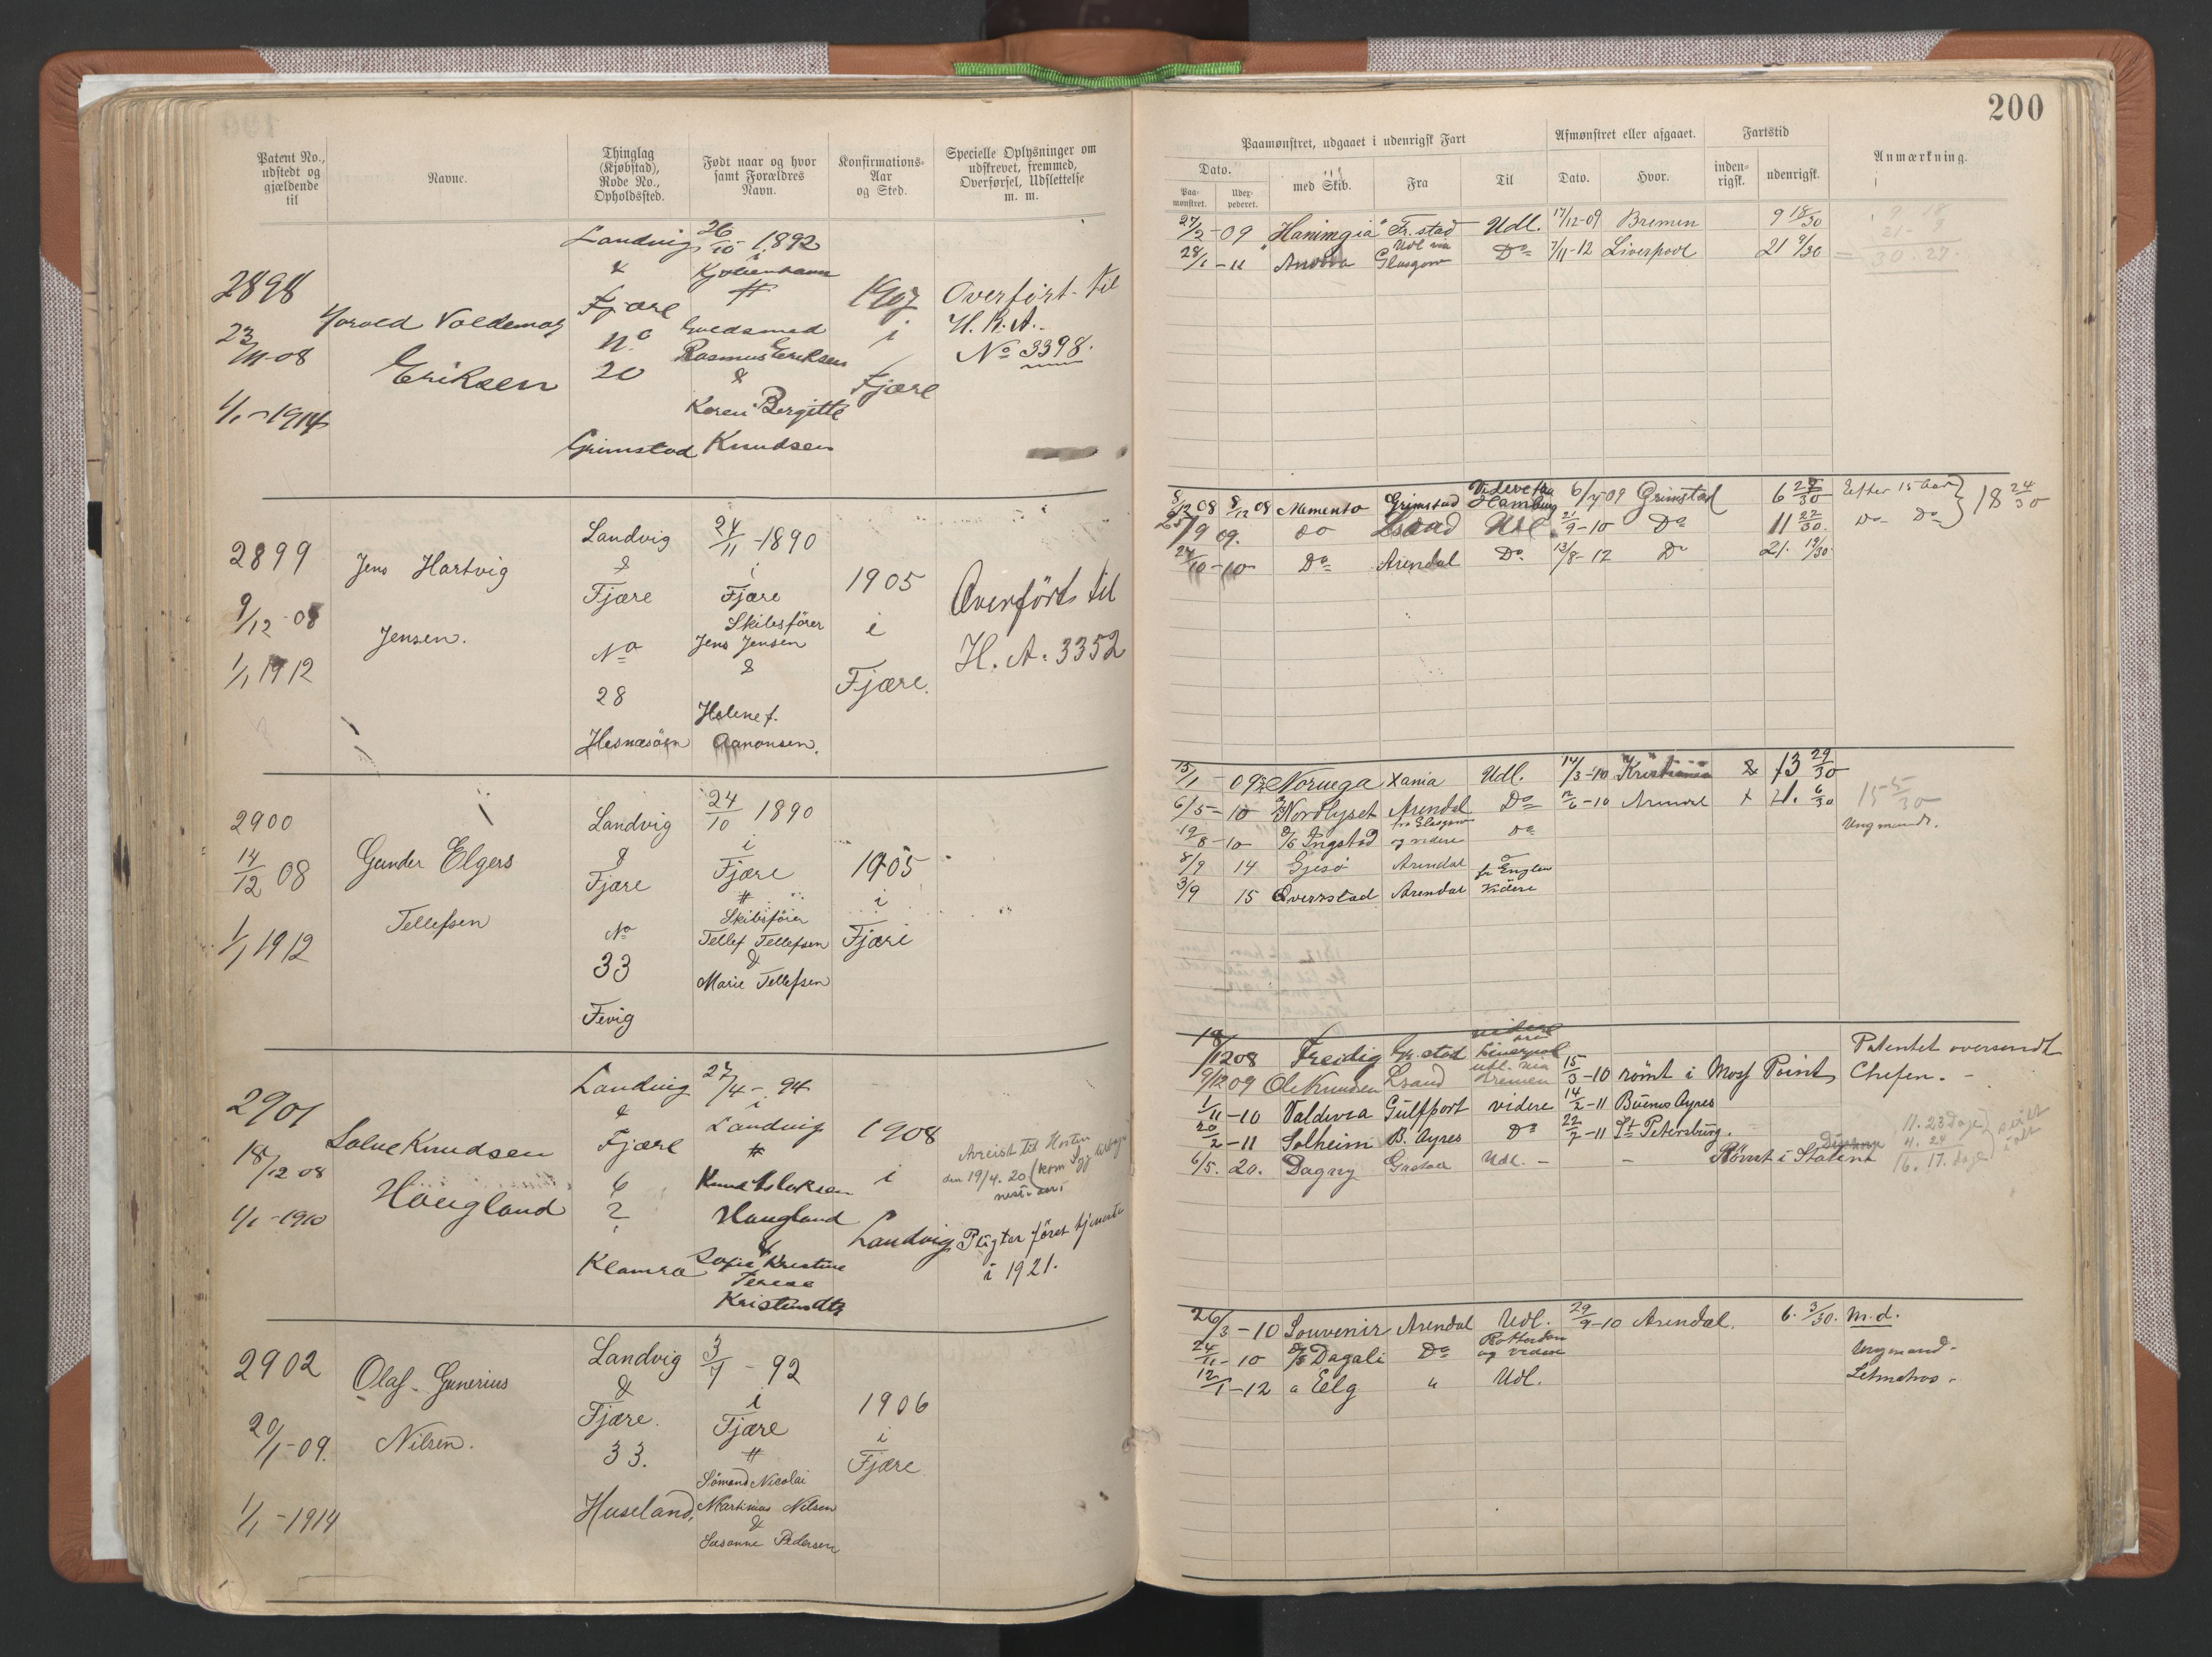 200
Patent No., udstedt og gjældende til
Navne.
Thinglag (Kjøbstad), Rode No., Opholdssted.
Født naar og hvor samt Forældres Navn.
Konfirmations- Aar og Sted.
Specielle Oplysninger om udskrevet, fremmed, Overførsel, Udslettelse m. m.
Paamønstret, udgaaet i udenrigsk Fart
Dato.
Paa- mønstret.
Udex- pederet.
med Skib.
Fra
Til
Afmønstret eller afgaaet.
Dato.
Hvor.
Fartstid
inden- rigsk.
udenrigsk.
Anmærkning.
2898
23/11-08
1/1-1914
Harald Valdemar
Eriksen
Landvig
&
Fjære
No
20
Grimstad
26/10 1892
i
Kjøbenhavn
#
Guldsmed
Rasmus Eriksen
&
Karen Bergitte
Knudsen
1907
i
Fjære
Overført til
H. R. A.
No 3398.
27/2-09 Fr.stad Udl. 17/12-09 Bremen 9 18/30
28/1-11 Udl via Glasgow Do 7/11-12 Liverpool 21 9/30
30.27.
2899
9/12-08
1/1 1912
Jens Hartvig
Jensen.
Landvig
&
Fjære
No
28
Hesnæsöen
24/11-1890
i
Fjære
Skibsfører
Jens Jensen
&
Helene f.
Aanonsen.
1905
i
Fjære.
Overført til
H. A. 3352
8/12 08 8/12 08 Memento Grimstad Hamburg 6/7-09 Grimstad 6 27/30 Efter 15 Aar } 18 24/30
25/9 09. do Udl. 21/9-10 Do 11 22/30. Do Do
24/10-10 Do Arendal Do 13/8-12 Do 21. 19/30.
2900
14/12 08
1/1 1912
Gunder Elgers
Tellefsen
Landvig
&
Fjære
No
33
Fevig
24/10 1890
i
Fjære
#
Skibsfører
Tellef Tellefsen
&
Marie Tellefsen
1905
i
Fjære
15/1-09 Noruega Xania Udl. 14/3-10 Kristiania & 13 29/30
6/5-10 Nordlyset Arendal Do 12/6-10 Arendal 21. 6/30 15 5/30
19/8-10 D/S Ingstad fra Glasgow og videre Do Ungmands.
8/9 14 Gjesø Arendal
3/9 15 Qverrstad Arendal videre
2901
18/12 08
1/1-1910
Salve Knudsen
Haugland
Landvig
&
Fjære
6
2
Klamra
27/4-94
i
Landvig
#
Haugland
&
Sofie Kristine
Terese
Kristensdtr
1908
i
Landvig
Avreist til Horten
den 19/4. 20 (kom
Pligter føret tjeneste
i 1921.
18/12 08 Freidig Gr.stad videre Liverpool Patentet oversendt
9/12 09 Ole Knudsen Lsand udl. via Bremen 15/3-10 rømt i Moss Point, Chefen.
1/11-10 Valdivia Gulfport videre 14/2-11 Buenos Ayres
20/2-11 Solheim B. Ayres Do 22/7-11 St Petersburg. 11. 23 Dage
4. 24
6/5. 20. Dagny Udl. - - Rømt i Statene 16. 17. dage
2902
20/1-09.
1/1-1914
Olaf Gunerius
Nilsen.
Landvig
&
Fjære.
33.
Huseland,
3/7-92
i
Fjære
#
Sømand Nicolai
Martinius Nilsen
&
Susanne Pedersen
1906
i
Fjære
26/3-10 Souvenir Arendal Udl. 29/9-10 Arendal. 6. 3/30. m.d.
24/11-10 D/S Dagali Do Rotterdam og videre Ungmand-
12/1-12 " Elg " Udl. Letmatros-